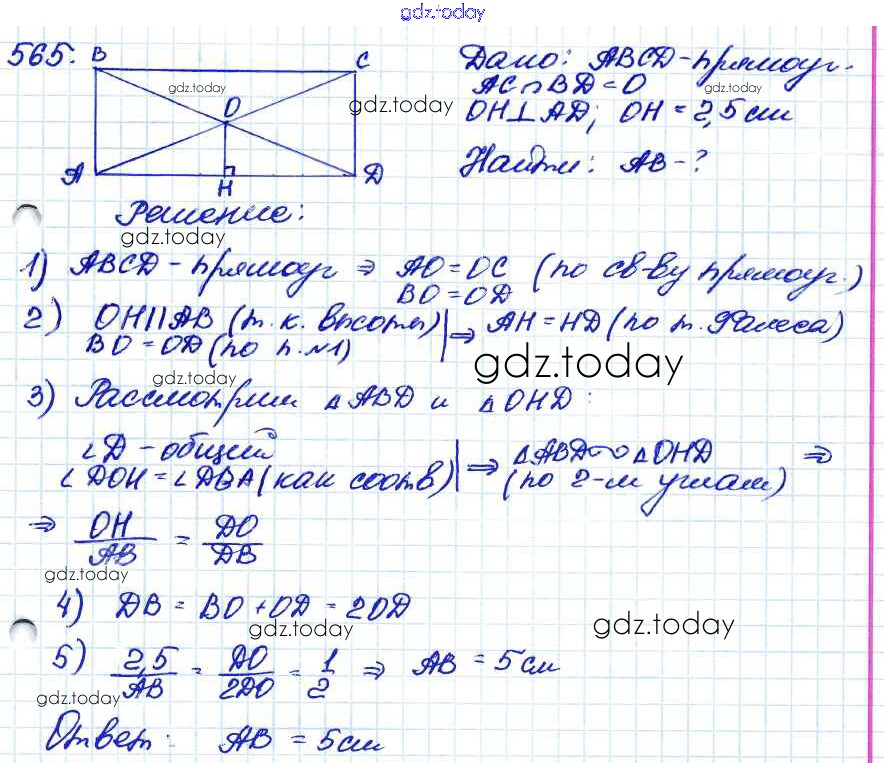 gdz.today
565.
B
C
O
A
H
D
gdz.today
Дано: ABCD-прямоуг.
gdz.today
AC∩BD=O
gdz.today
OH⊥AD; OH=2,5см
Найти: AB-?
Решение:
gdz.today
1) ABCD-прямоуг ⇒ AO=OC (по св-ву прямоуг.)
BO=OD
2) OH||AB (т.к. высоты) | ⇒ AH=HD (по т. Фалеса)
BO=OD (по п.№1)
gdz.today
gdz.today
3) Рассмотрим ΔABD и ΔOHD:
∠D-общий | ⇒ ΔABD∾ΔOHD ⇒
∠DOH=∠DBA (как соотв) (по 2-м углам)
⇒ OH/AB = DO/DB
gdz.today
4) DB = BO+OD = 2OD
gdz.today
gdz.today
5) 2,5/AB = DO/2DO = 1/2 ⇒ AB = 5см
gdz.today
Ответ: AB = 5см